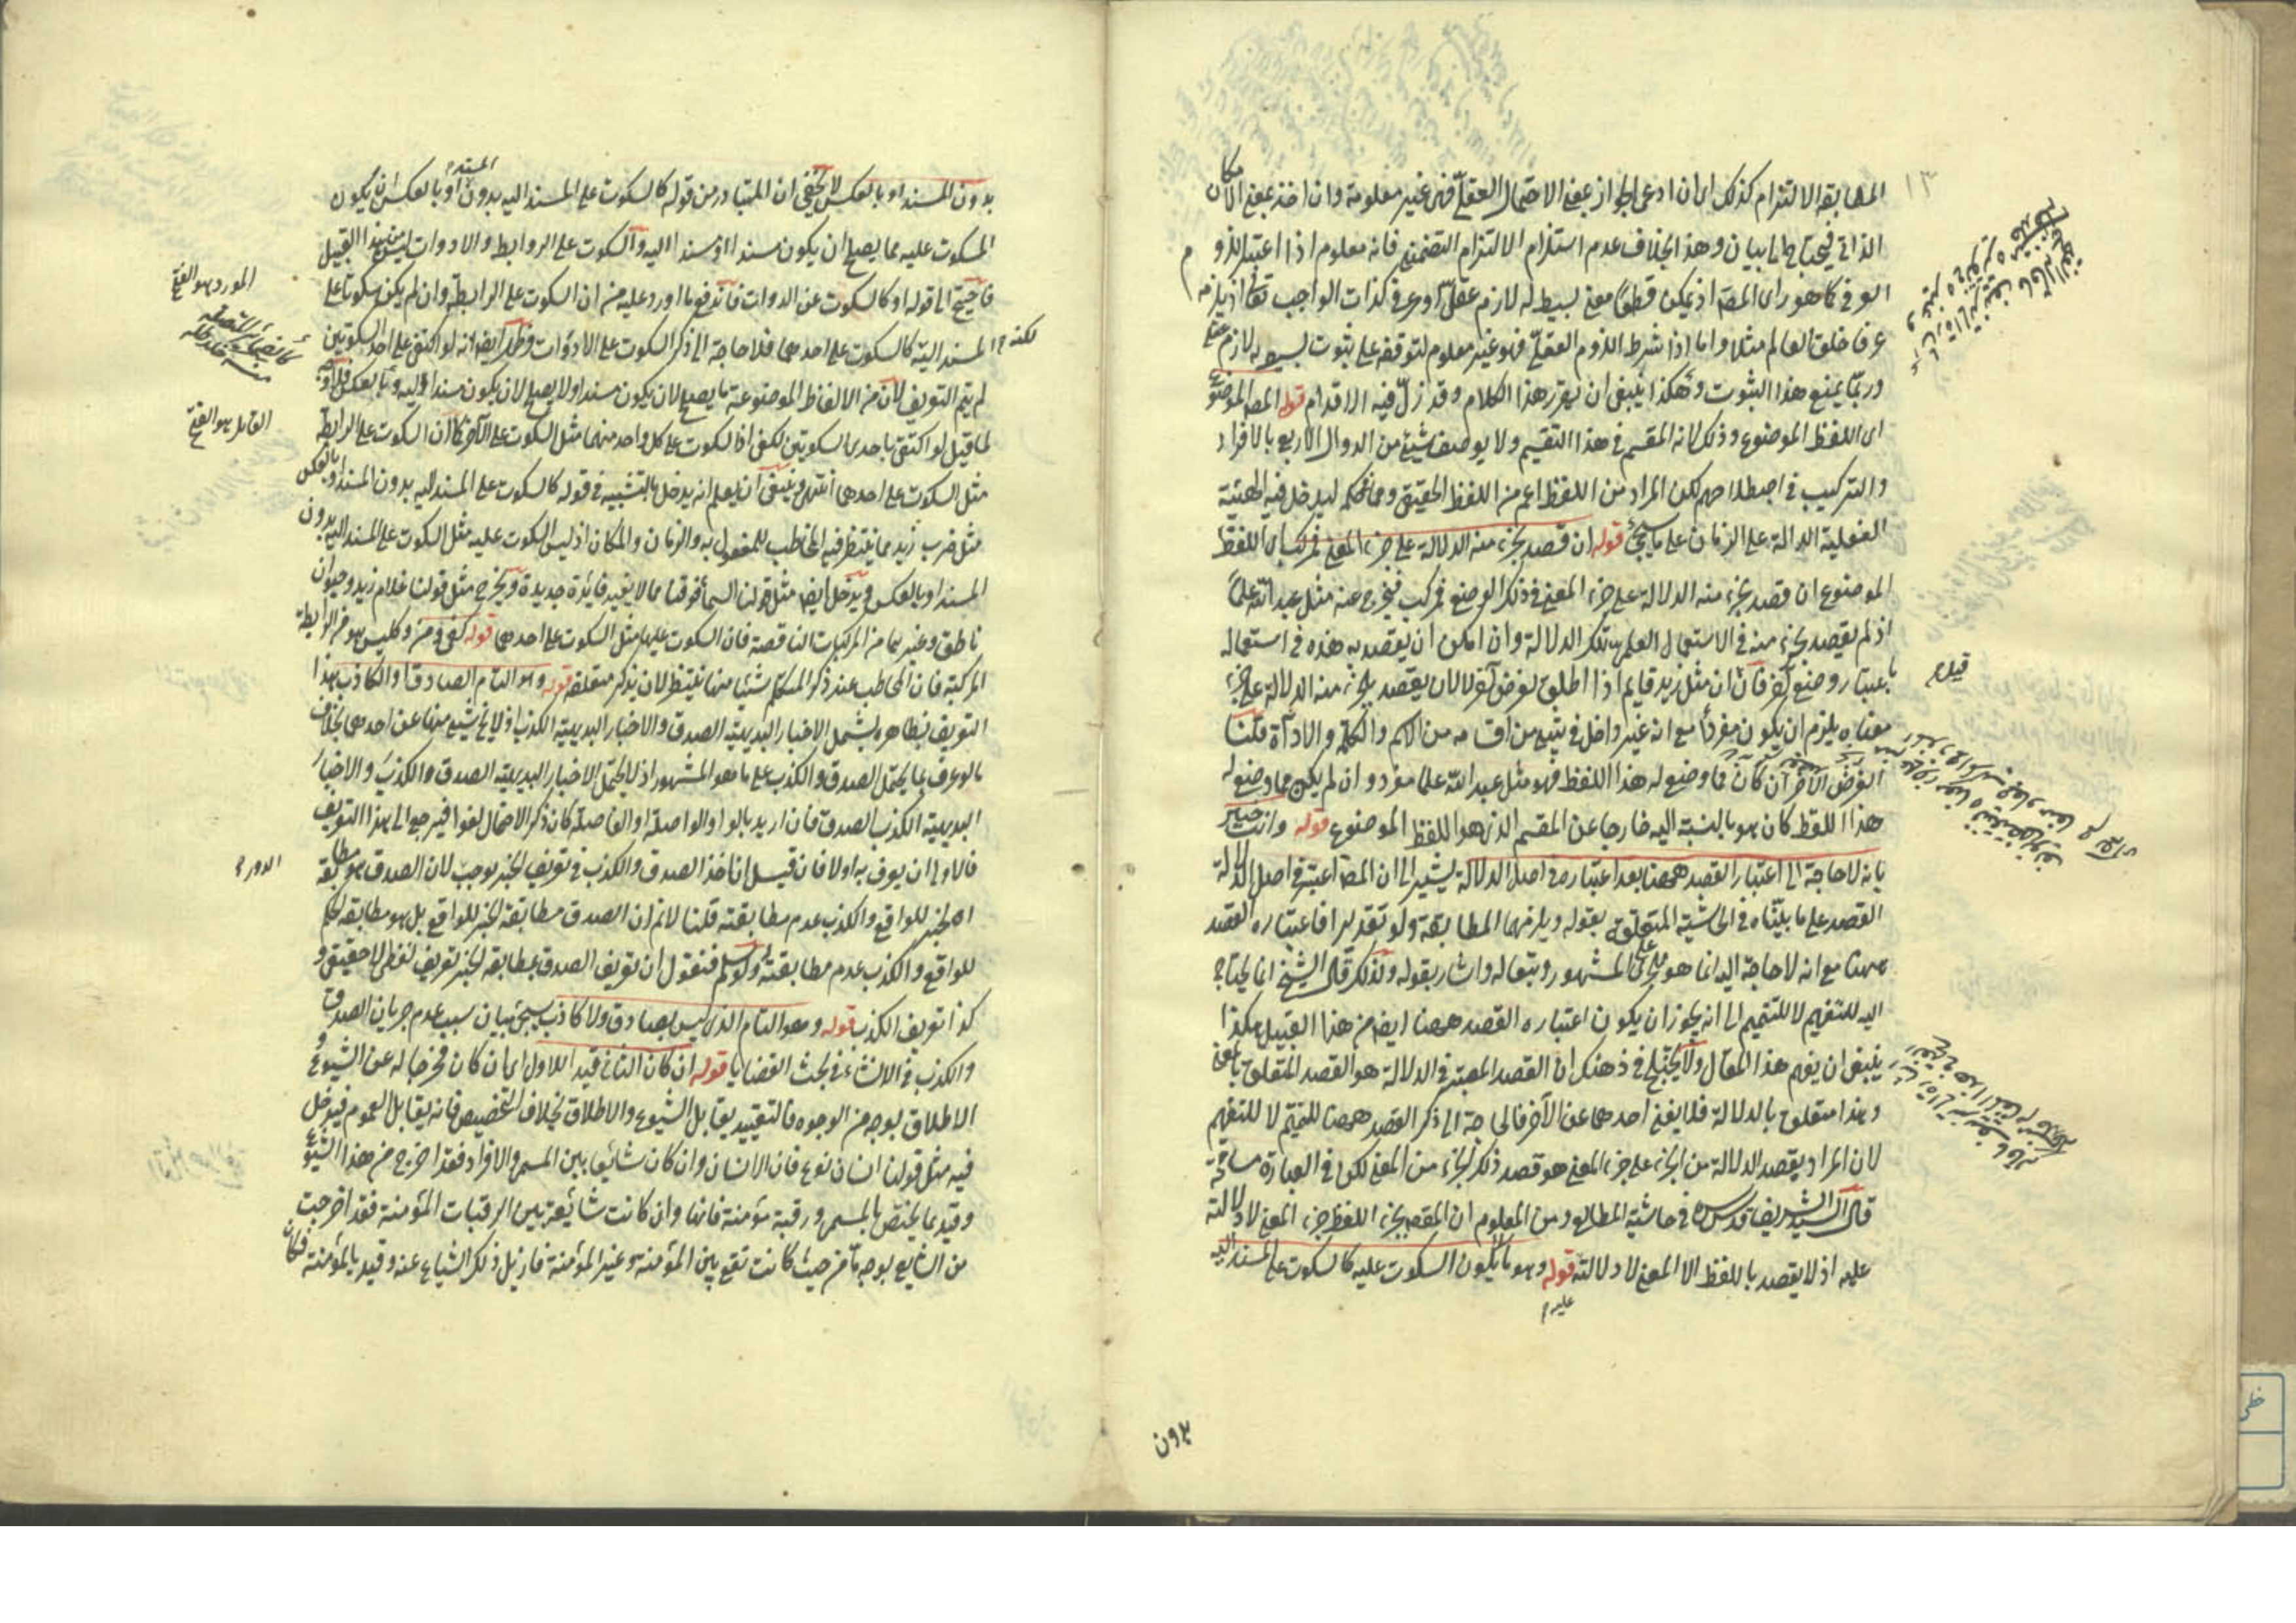 ١٣
المطابقة الالتزام كذلك اى ان ادعى الجواز بمعنى الاحتمال العقلى فهى غير معلومة وان اخذ بمعنى الامكان
الذاتى فيحتاج الى بيان وهذا بخلاف عدم استلزام الالتزام التضمن فانه معلوم اذا اعتبر اللزوم
العرفى كما هو راى المص اذ يمكن قطعا معنى بسيط له لازم عقلى او عرفى كذات الواجب تعالى اذ يلزمه
عرفا خلق العالم مثلا واما اذا شرط اللزوم العقلى فهو غير معلوم لتوقفه على ثبوت بسيط له لازم عقلى
وربما يمنع هذا الثبوت وهكذا ينبغى ان يقرر هذا الكلام وقد زل فيه الاقدام قوله المص الموضوع
اى اللفظ الموضوع وذلك لانه المقسم فى هذا التقسيم ولا يوصف شيئ من الدوال الاربع بالافراد
والتركيب فى اصطلاحهم لكن المراد من اللفظ اعم من اللفظ الحقيقى وما فى حكمه ليدخل فيه الهيئة
الفعلية الدالة على الزمان على ما سيجئ قوله ان قصد بجزء منه الدلالة على جزء المعنى فمركب اى اللفظ
الموضوع ان قصد بجزء منه الدلالة على جزء المعنى فى ذلك الوضع فمركب فيخرج عنه مثل عبد الله علما
اذ لم يقصد بجزء منه فى الاستعمال العلمى تلك الدلالة وان امكن ان يقصد به هذه فى استعماله
باعتبار وضع آخر فان ان مثل زيد قايم اذا اطلق لغرض آخر لا لان يقصد بجزء منه الدلالة على جزء
معناه يلزم ان يكون مفردا مع انه غير داخل فى شيئ من اقسامه من الاسم والكلمة والاداة قلنا
الغرض الآخر ان كان مما وضع له هذا اللفظ فهو مثل عبد الله علما مفرد وان لم يكن مما وضع له
هذا اللفظ كان هو بالنسبة اليه خارجا عن المقسم الذى هو اللفظ الموضوع قوله وانت خبير
بانه لا حاجة الى اعتبار القصد ههنا بعد اعتباره فى اصل الدلالة يشير الى ان المص اعتبر فى اصل الدلالة
القصد على ما بيناه فى الحاشية المتعلقة بقوله ويلزمهما المطابقة ولو تقديرا فاعتباره القصد
ههنا مع انه لا حاجة اليه انما هو على المشهور ومتعاله واشار بقوله ولذلك قال الشيخ انما يحتاج
اليه للتفهيم لا للتتميم الى انه يجوز ان يكون اعتباره القصد ههنا ايضا من هذا القبيل هكذا
ينبغى ان يفهم هذا المقال ولا يختلج فى ذهنك ان القصد المعتبر فى الدلالة هو القصد المتعلق بالمعنى
وهذا متعلق بالدلالة فلا يغنى احدهما عن الآخر فالحاجة الى ذكر القصد ههنا للتتميم لا للتفهيم
لان المراد بقصد الدلالة من الجزء على جزء المعنى هو قصد ذلك الجزء من المعنى لكن فى العبارة مسامحة
قال السيد الشريف قدس سره فى حاشية المطالع ومن المعلوم ان المقصود بجزء اللفظ جزء المعنى لا دلالته
عليه اذ لا يقصد باللفظ الا المعنى لا دلالته قوله وهو ما لا يكون السكوت عليه كالسكوت على المسند اليه
عليه م
بدون
بدون المسند او بالعكس لا يخفى ان المتبادر من قوله كالسكوت على المسند اليه بدون المسند او بالعكس ان يكون
المسكوت عليه مما يصلح ان يكون مسندا او مسندا اليه والسكوت على الروابط والادوات ليس من هذا القبيل
فاحتيج الى قوله او كالسكوت عن الادوات فاندفع ما اورد عليه من ان السكوت على الرابطة وان لم يكن سكوتا على
المسند اليه لكنه كالسكوت على احدهما فلا حاجة الى ذكر السكوت على الادوات وظهر ايضا انه لو اكتفى على احد السكوتين
لم يتم التعريف لان من الالفاظ الموضوعة ما يصلح لان يكون مسندا ولا يصلح لان يكون مسندا اليه وبالعكس فلا وجه
لما قيل لو اكتفى باحدى السكوتين لكفى اذ السكوت على كل واحد منهما مثل السكوت على الآخر كما ان السكوت على الرابطة
مثل السكوت على احدهما انتهى وينبغى ان يعلم انه يدخل بالتشبيه فى قوله كالسكوت على المسند اليه بدون المسند او بالعكس
مثل ضرب زيد مما ينتظر فيه المخاطب للمفعول به والزمان والمكان اذ ليس السكوت عليه مثل السكوت على المسند اليه بدون
المسند او بالعكس ويدخل ايضا مثل قولنا السماء فوقنا مما لا يفيد فائدة جديدة ويخرج مثل قولنا غلام زيد وحيوان
ناطق وغيرهما من المركبات الناقصة فان السكوت عليها مثل السكوت على احدهما قوله كفى ومن وكليس هو من الرابطة
المركبة فان المخاطب عند ذكر المتكلم شيئا منها ينتظر لان يذكر متعلقه قوله وهو التام الصادق او الكاذب هذا
التعريف بظاهره يشمل الاخبار البديهية الصدق والاخبار البديهية الكذب اذ لا يخ شيئ منها عن احدهما بخلاف
ما لو عرف بما يحتمل الصدق والكذب على ما هو المشهور اذ لا يحتمل الاخبار البديهية الصدق والكذب والاخبار
البديهية الكذب الصدق فان اريد بالواو الواصلة او الفاصلة كان ذكر الاحتمال لغوا فيرجع الى هذا التعريف
فالاولى ان يعرف به اولا فان قيل اخذ الصدق والكذب فى تعريف الخبر يوجب لان الصدق هو مطابقة
الخبر للواقع والكذب عدم مطابقته قلنا لا نم ان الصدق مطابقة الخبر للواقع بل هو مطابقة الحكم
للواقع والكذب عدم مطابقته ولو سلم فنقول ان تعريف الصدق بمطابقة الخبر تعريف لفظى لا حقيقى و
كذا تعريف الكذب قوله وهو التام الذى ليس بصادق ولا كاذب سيجئ بيان سبب عدم جريان الصدق
والكذب فى الانشاء فى بحث القضايا قوله ان كان الثانى قيدا للاول اى ان كان مخرجا له عن الشيوع و
الاطلاق بوجه من الوجوه فالتقييد يقابل الشيوع والاطلاق بخلاف التخصيص فانه يقابل العموم فيدخل
فيه مثل قولنا انسان نوع فان الانسان وان كان شائعا بين المسمى والافراد فقد اخرج من هذا الشيوع
وقيد بما يختص بالمسمى ورقبة مؤمنة فانها وان كانت شايعة بين الرقبات المؤمنة فقد اخرجت
من الشايع بوجه ما من حيث كانت تقع بين المؤمنة وغير المؤمنة فازيل ذلك الشياع عنه وقيد بالمؤمنة فكان
المورد هو الفتح
القائل هو الفتح
لكنه م
الدور م